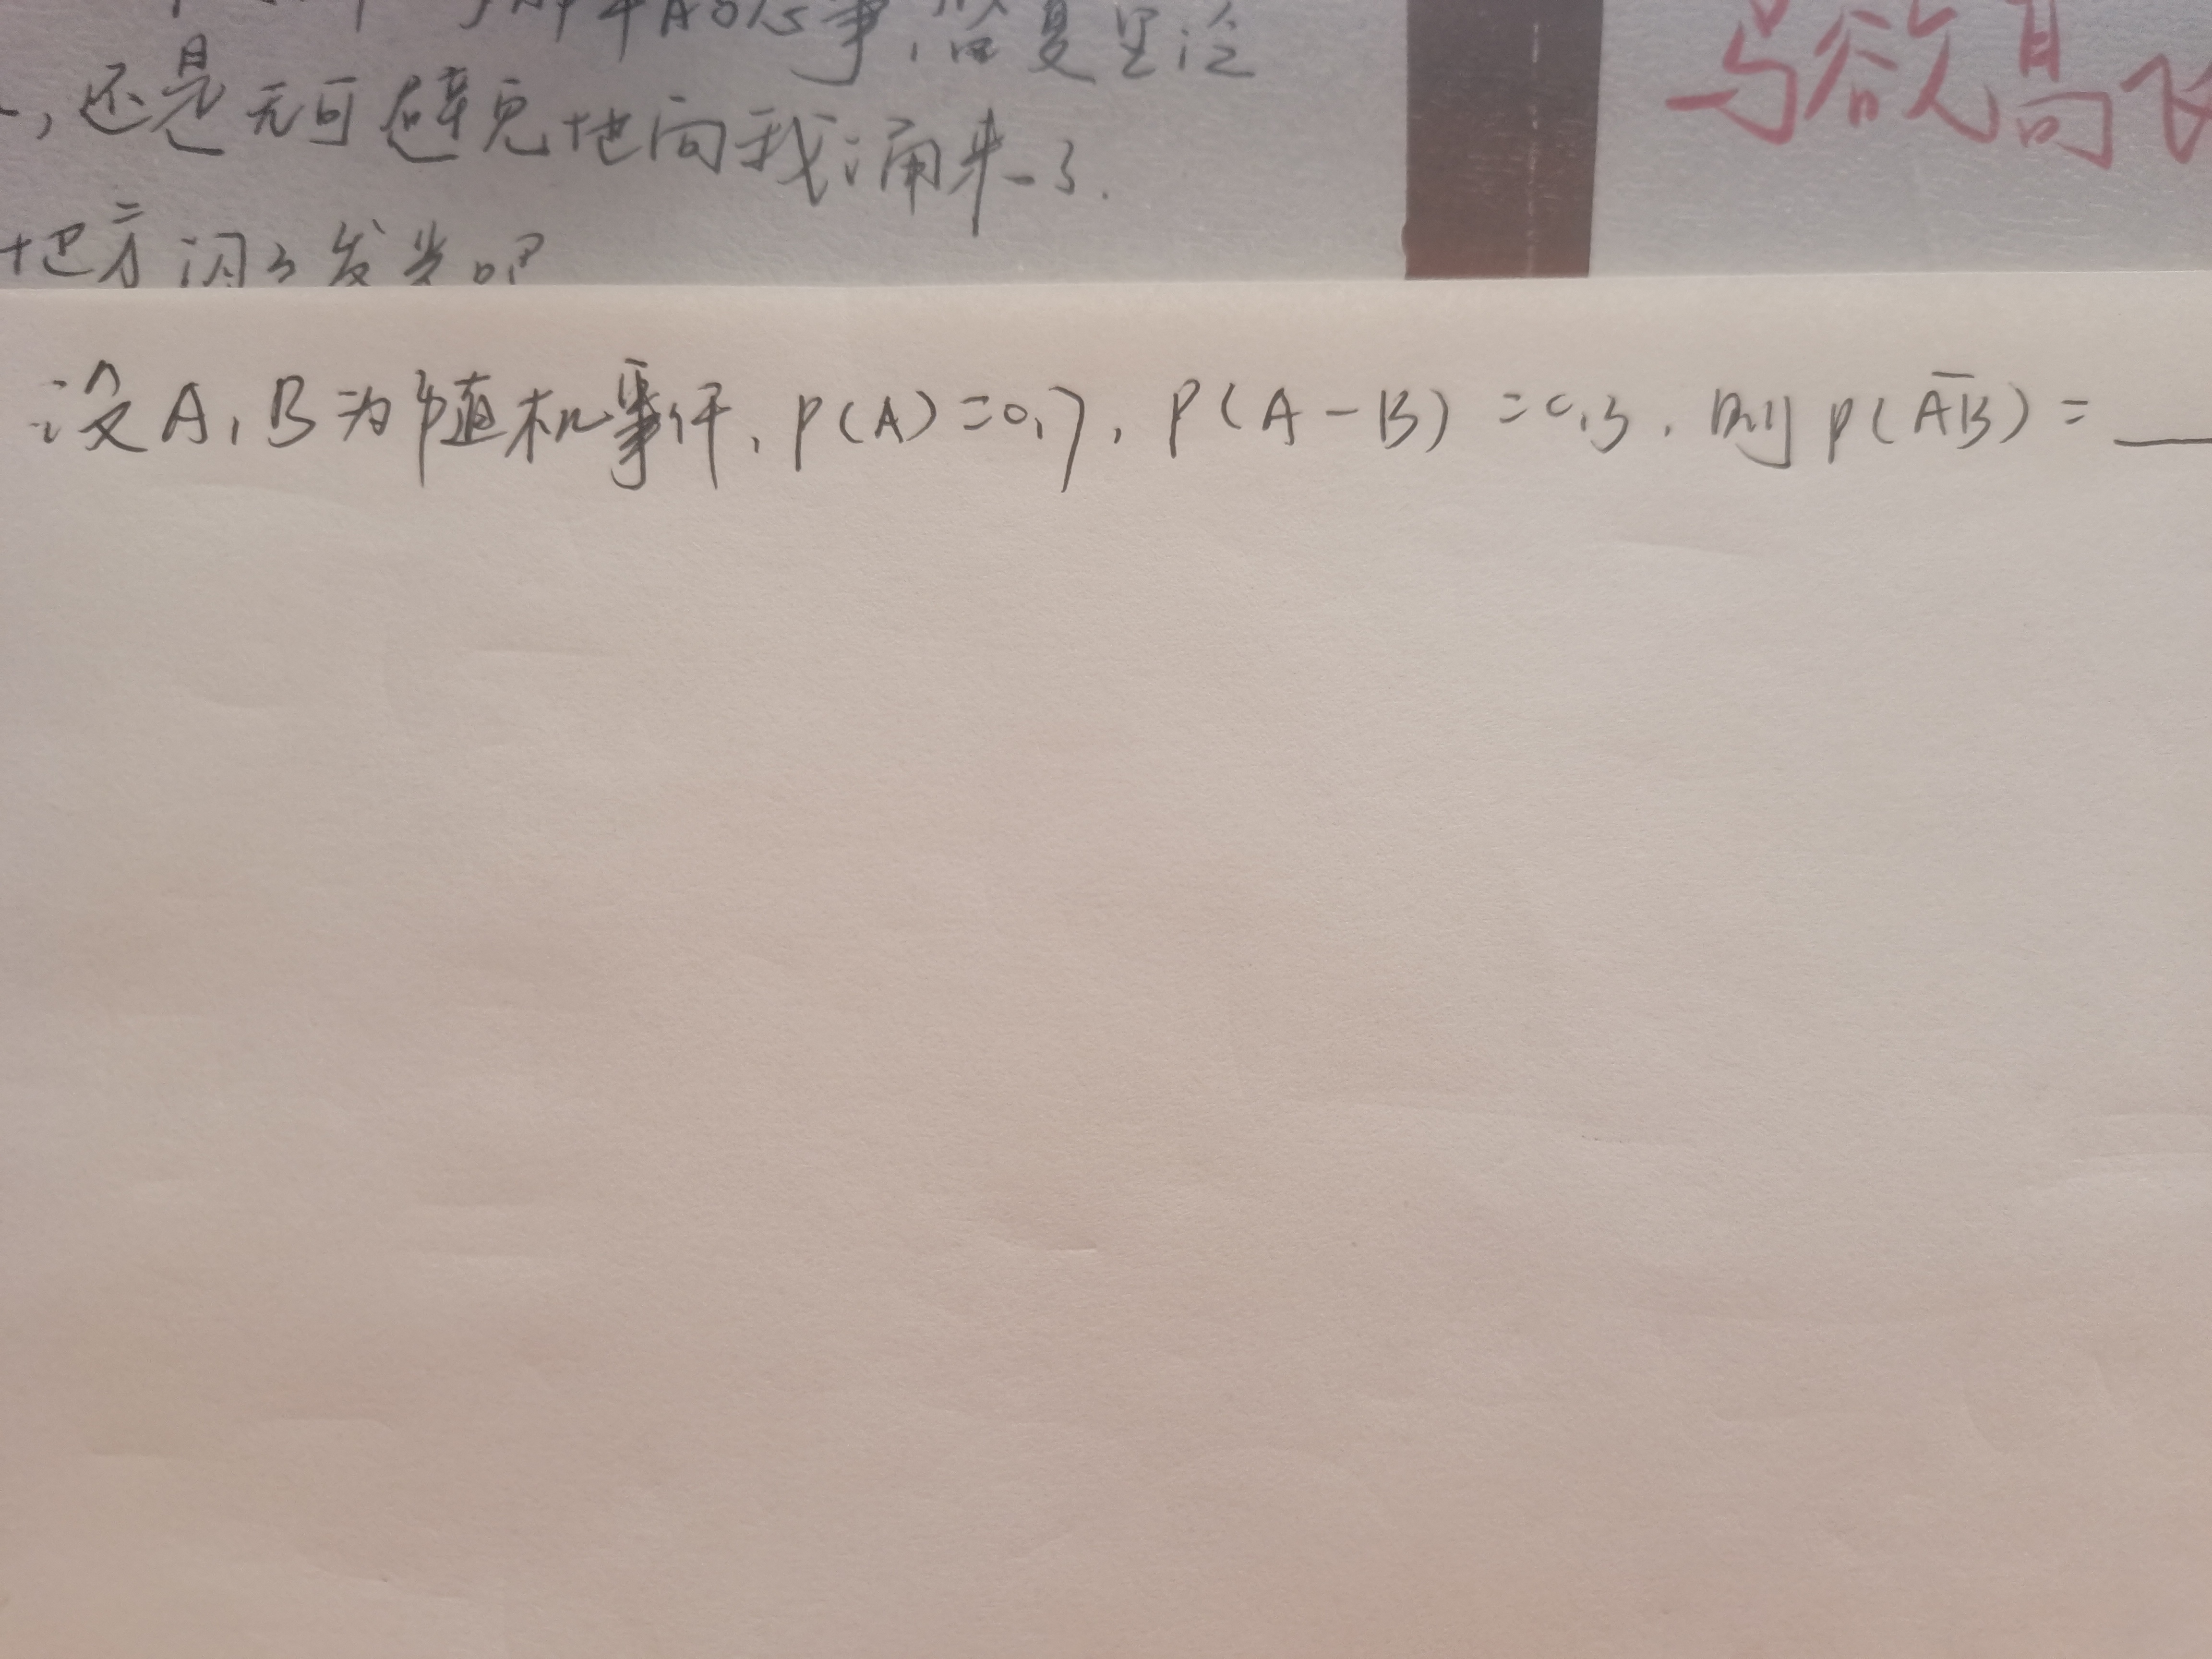 ,还是无可避免地向我涌来了.
地方闪闪发光吧
鸟欲高飞
设A,B为随机事件,P(A)=0.7,P(A-B)=0.3.则P(A̅B̅)=___